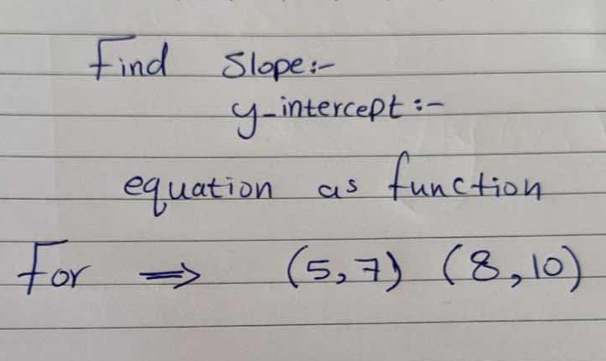 Find Slope:-
y-intercept:-
equation as function
For ⇒ (5,7) (8,10)